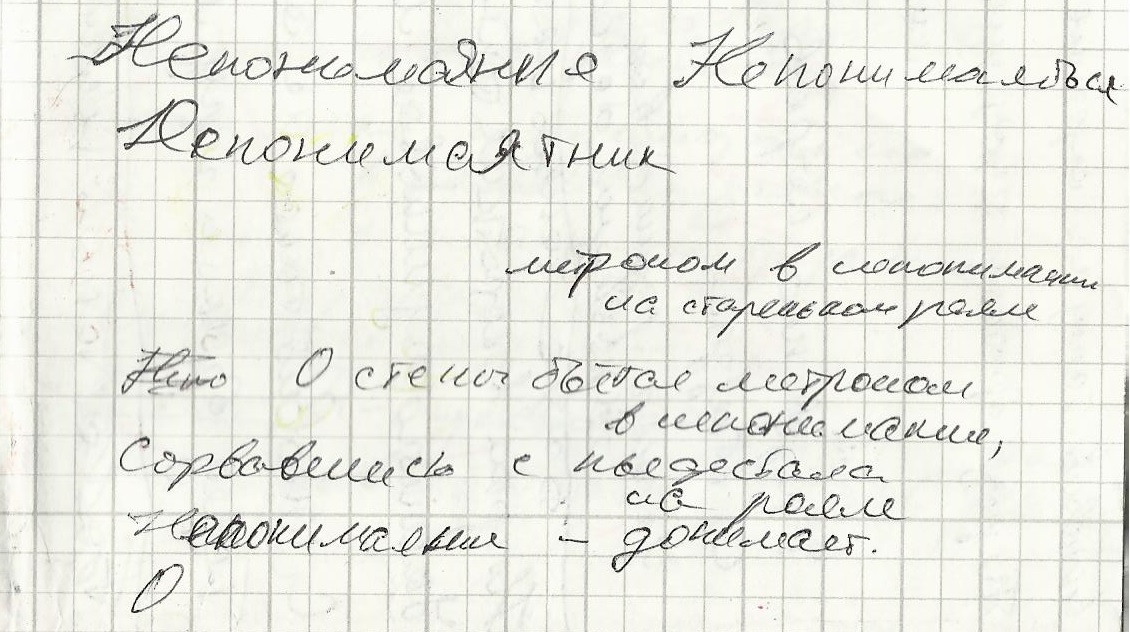 Непонимаяние Непонимаяться
Непонимаятник
метроном в непонимании
на стареньком рояле
О стены бьётся метроном
в непонимании,
Сорвавшись с пьедестала
на рояле
Непонимание – донимает.
О